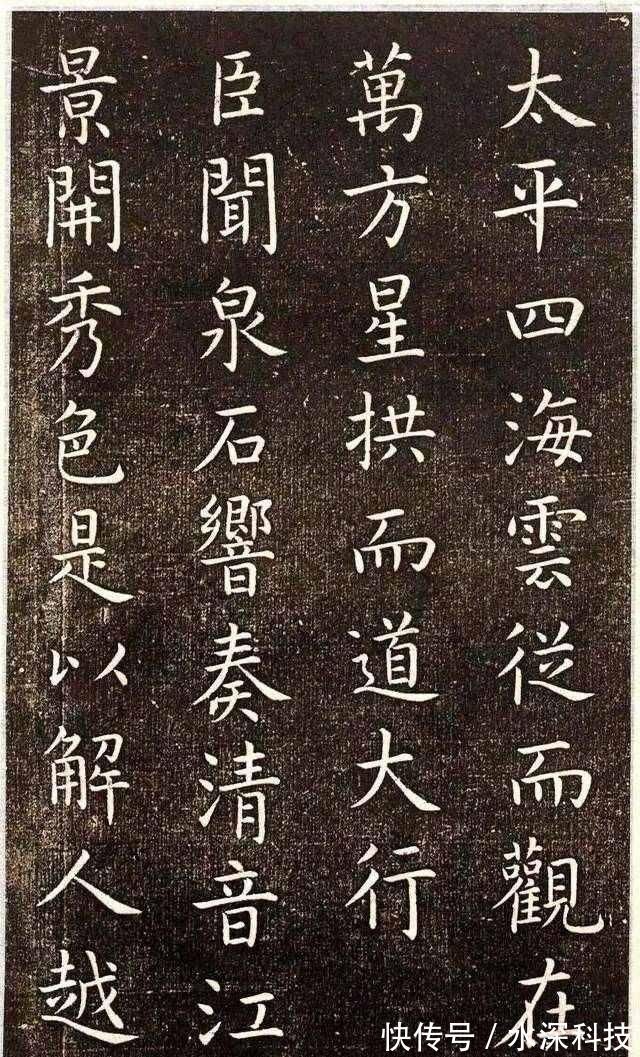 太平四海雲従而觀在
萬方星拱而道大行
臣聞泉石響奏清音江
景開秀色是以解人越
快传号 / 水深科技